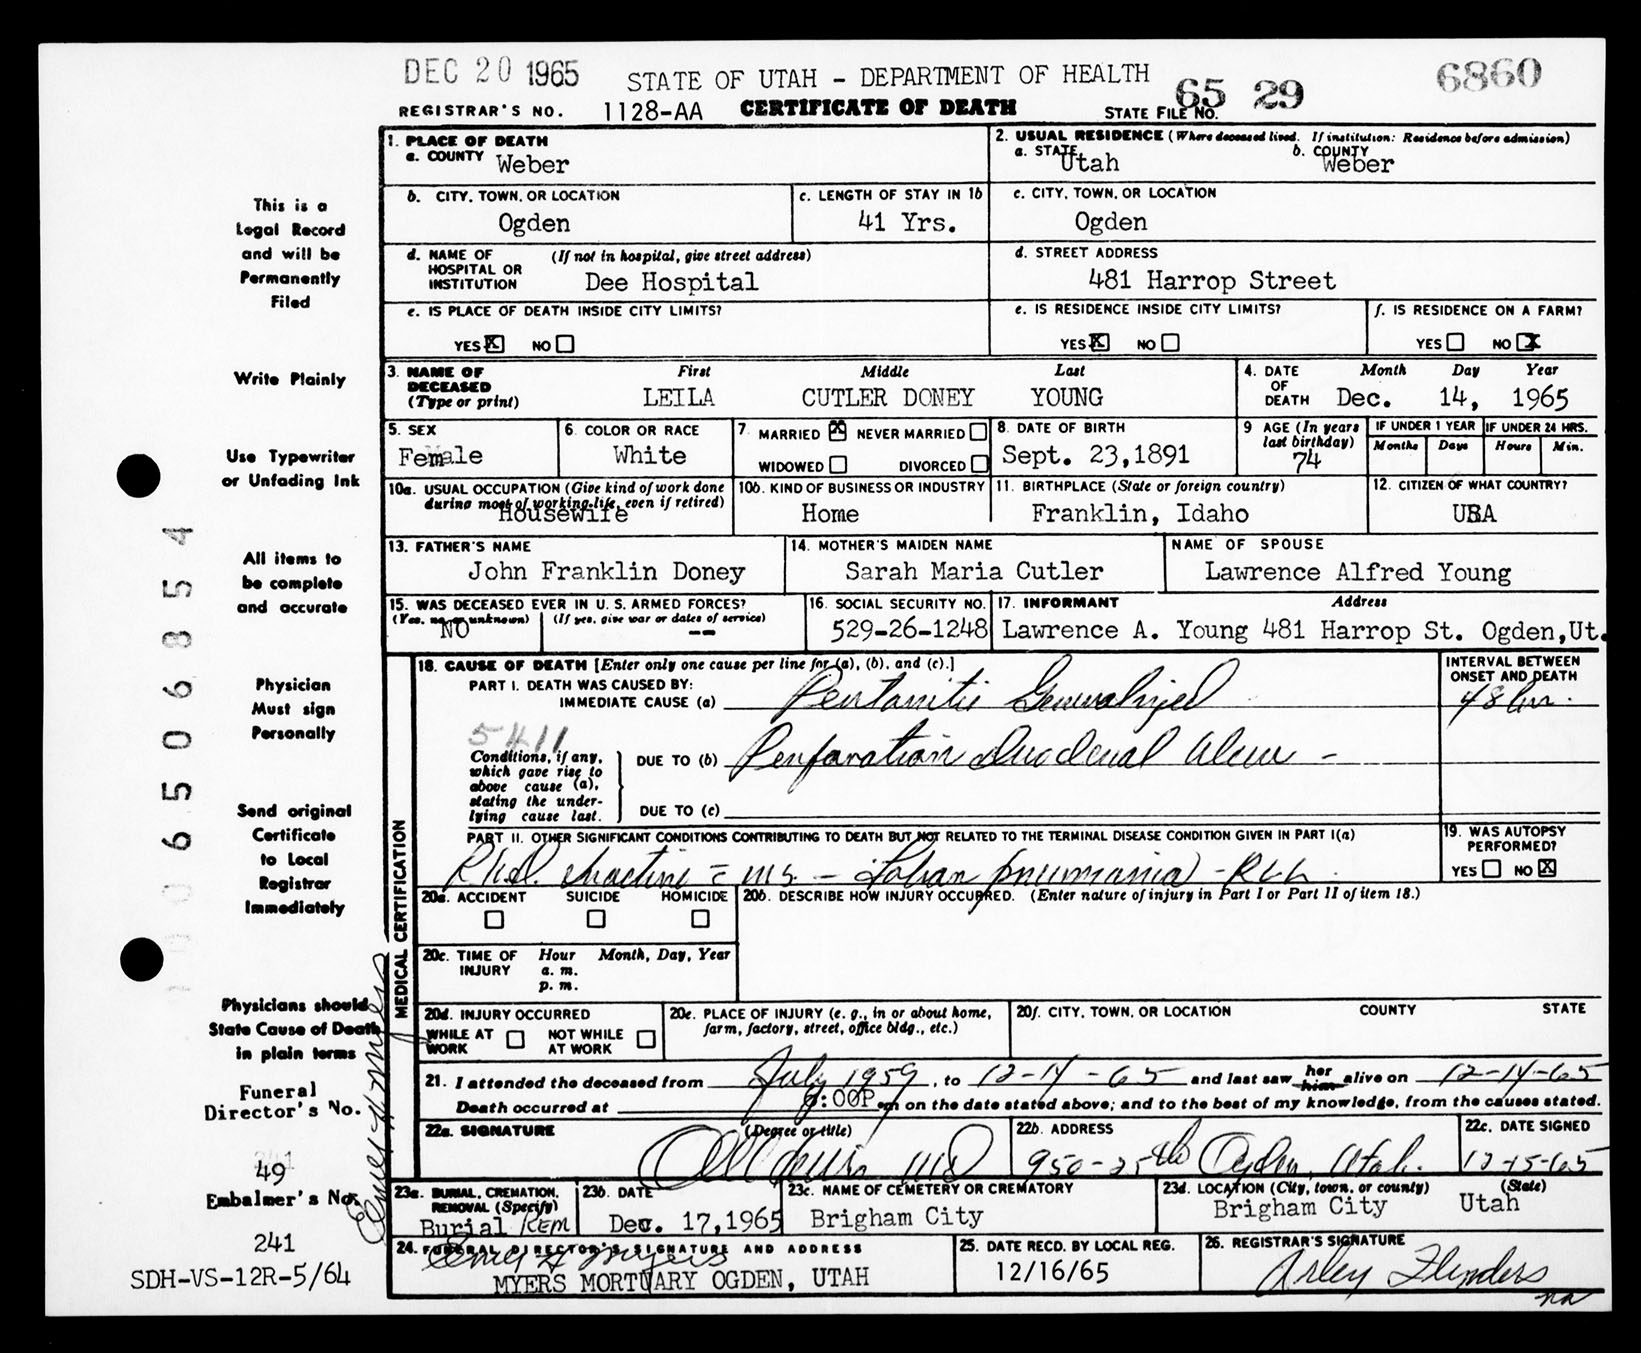 DEC 20 1965 STATE OF UTAH - DEPARTMENT OF HEALTH 6860
REGISTRAR'S NO. 1128-AA CERTIFICATE OF DEATH STATE FILE NO. 65 29
1. PLACE OF DEATH
a. COUNTY Weber
2. USUAL RESIDENCE (Where deceased lived. If institution: Residence before admission)
a. STATE Utah b. COUNTY Weber
b. CITY, TOWN, OR LOCATION
Ogden
c. LENGTH OF STAY IN 1b
41 Yrs.
c. CITY, TOWN, OR LOCATION
Ogden
d. NAME OF HOSPITAL OR INSTITUTION (If not in hospital, give street address)
Dee Hospital
d. STREET ADDRESS
481 Harrop Street
e. IS PLACE OF DEATH INSIDE CITY LIMITS?
YES X NO
e. IS RESIDENCE INSIDE CITY LIMITS?
YES X NO
f. IS RESIDENCE ON A FARM?
YES NO X
3. NAME OF DECEASED (Type or print) First Middle Last
LEILA CUTLER DONEY YOUNG
4. DATE OF DEATH Month Day Year
Dec. 14, 1965
5. SEX
Female
6. COLOR OR RACE
White
7. MARRIED X NEVER MARRIED
WIDOWED DIVORCED
8. DATE OF BIRTH
Sept. 23,1891
9 AGE (In years last birthday)
74
IF UNDER 1 YEAR IF UNDER 24 HRS.
Months Days Hours Min.
10a. USUAL OCCUPATION (Give kind of work done during most of working life, even if retired)
Housewife
10b. KIND OF BUSINESS OR INDUSTRY
Home
11. BIRTHPLACE (State or foreign country)
Franklin, Idaho
12. CITIZEN OF WHAT COUNTRY?
USA
13. FATHER'S NAME
John Franklin Doney
14. MOTHER'S MAIDEN NAME
Sarah Maria Cutler
NAME OF SPOUSE
Lawrence Alfred Young
15. WAS DECEASED EVER IN U.S. ARMED FORCES?
(Yes, no or unknown) (If yes, give war or dates of service)
NO --
16. SOCIAL SECURITY NO.
529-26-1248
17. INFORMANT Address
Lawrence A. Young 481 Harrop St. Ogden,Ut.
MEDICAL CERTIFICATION
18. CAUSE OF DEATH [Enter only one cause per line for (a), (b), and (c).]
PART I. DEATH WAS CAUSED BY:
IMMEDIATE CAUSE (a) Peritonitis Generalized
INTERVAL BETWEEN ONSET AND DEATH
48 hr.
5411
Conditions, if any, which gave rise to above cause (a), stating the underlying cause last.
DUE TO (b) Perforation Duodenal Ulcer -
DUE TO (c)
PART II. OTHER SIGNIFICANT CONDITIONS CONTRIBUTING TO DEATH BUT NOT RELATED TO THE TERMINAL DISEASE CONDITION GIVEN IN PART I(a)
R.H.D. inactive - Lobar pneumonia - RLL
19. WAS AUTOPSY PERFORMED?
YES NO X
20a. ACCIDENT SUICIDE HOMICIDE
20b. DESCRIBE HOW INJURY OCCURRED. (Enter nature of injury in Part I or Part II of item 18.)
20c. TIME OF INJURY Hour Month, Day, Year
a. m.
p. m.
20d. INJURY OCCURRED
WHILE AT WORK NOT WHILE AT WORK
20e. PLACE OF INJURY (e. g., in or about home, farm, factory, street, office bldg., etc.)
20f. CITY, TOWN, OR LOCATION COUNTY STATE
21. I attended the deceased from July 1959, to 12-14-65 and last saw her him alive on 12-14-65
Death occurred at :00P m on the date stated above; and to the best of my knowledge, from the causes stated.
22a. SIGNATURE (Degree or title)
MD
22b. ADDRESS
950-25th Ogden, Utah.
22c. DATE SIGNED
12-15-65
23a. BURIAL, CREMATION, REMOVAL (Specify)
Burial REM
23b. DATE
Dec. 17,1965
23c. NAME OF CEMETERY OR CREMATORY
Brigham City
23d. LOCATION (City, town, or county) (State)
Brigham City Utah
24. FUNERAL DIRECTOR'S SIGNATURE AND ADDRESS
Emery H Myers
MYERS MORTUARY OGDEN, UTAH
25. DATE RECD. BY LOCAL REG.
12/16/65
26. REGISTRAR'S SIGNATURE
Arley Flinders
na
This is a
Legal Record
and will be
Permanently
Filed
Write Plainly
Use Typewriter
or Unfading Ink
All items to
be complete
and accurate
Physician
Must sign
Personally
Send original
Certificate
to Local
Registrar
Immediately
Physicians should
State Cause of Death
in plain terms
Funeral
Director's No.
49
Embalmer's No.
241
SDH-VS-12R-5/64
Emery H Myers
006506854